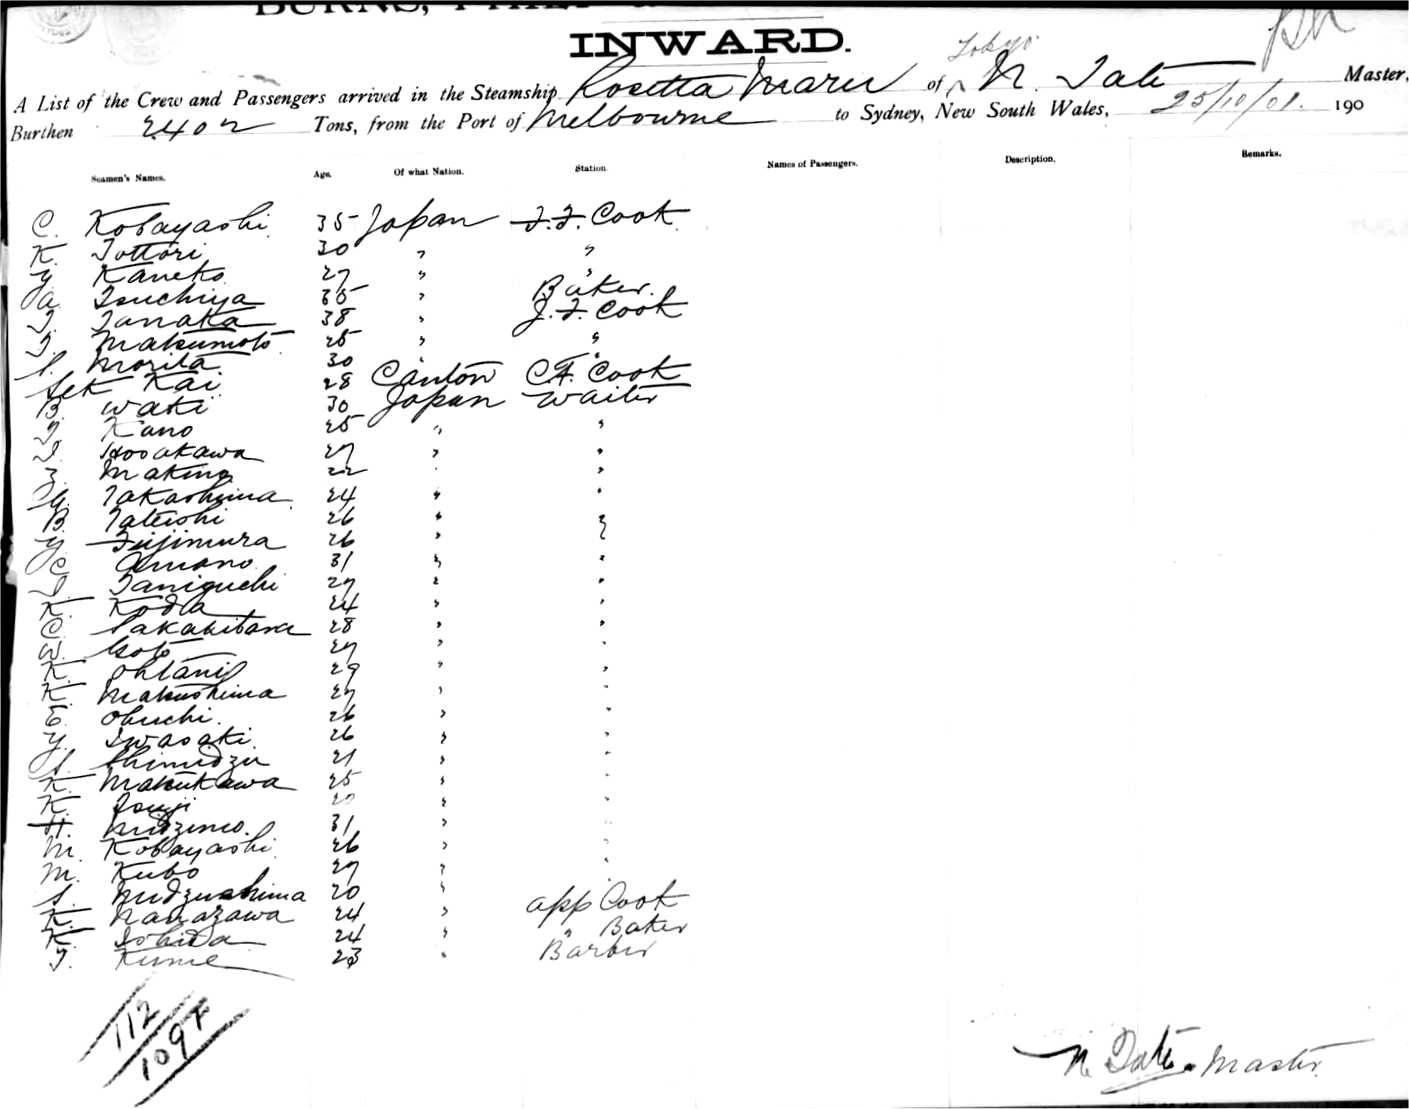 INWARD.
Tokyo
A List of the Crew and Passengers arrived in the Steamship Rosetta Maru of N. Tate Master,
Burthen 2402 Tons, from the Port of Melbourne to Sydney, New South Wales, 25/10/01. 190
Seamen's Names. Age. Of what Nation. Station Names of Passengers. Description. Remarks.
C. Kobayashi 35 Japan F.F. Cook
K. Tottori 30 " "
Y. Kaneko 27 " "
A. Tsuchiya 35 " Baker.
T. Tanaka 38 " J.F. Cook
T. Matsumoto 25 " "
S. Morita 30 " "
Sek Kai 28 Canton C.F. Cook
B. Waki 30 Japan Waiter
Y. Kano 25 " "
I. Hosokawa 27 " "
Z. Makino 22 " "
Y. Takashima 24 " "
B. Tateishi 26 " "
Y. Fujimura 26 " "
C. Amano 31 " "
I. Taniguchi 27 " "
K. Koda 24 " "
C. Sakakibara 28 " "
W. Goto 27 " "
K. Ohtani 29 " "
K. Matsushima 27 " "
E. Obuchi. 26 " "
Y. Iwasaki 26 " "
S. Shimidzu 21 " "
K. Matsukawa 25 " "
K. Tsuji 20 " "
H. Midzuno. 31 " "
M. Kobayashi 26 " "
M. Kubo 27 " "
S. Midzushima 20 "
K. Nanazawa 24 " app Cook
K. Ishida 24 " " Baker
T. Kume 23 " Barber
112
109+
N. Tate Master.